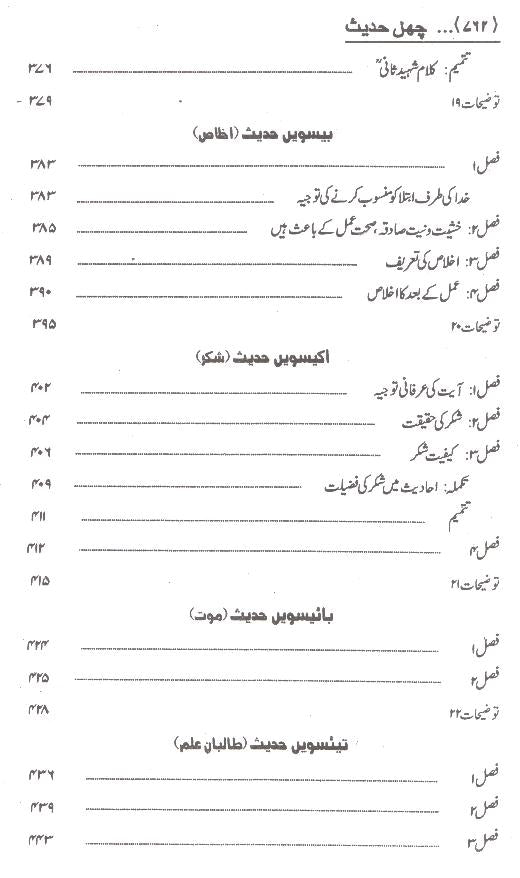 (۷۶۲)... چهل حدیث
تتمیم: کلام شہید ثانیؒ ۳۷۶
توضیحات ۱۹ ۳۷۹
بیسویں حدیث (اخلاص)
فصل ۱ ۳۸۳
خدا کی طرف ابتلا کو منسوب کرنے کی توجیہ ۳۸۳
فصل ۲: خشیت و نیت صادقہ، صحت عمل کے باعث ہیں ۳۸۵
فصل ۳: اخلاص کی تعریف ۳۸۹
فصل ۴: عمل کے بعد کا اخلاص ۳۹۰
توضیحات ۲۰ ۳۹۵
اکیسویں حدیث (شکر)
فصل ۱: آیت کی عرفانی توجیہ ۴۰۲
فصل ۲: شکر کی حقیقت ۴۰۴
فصل ۳: کیفیت شکر ۴۰۶
تکملہ: احادیث میں شکر کی فضیلت ۴۰۹
تتمیم ۴۱۱
فصل ۴ ۴۱۲
توضیحات ۲۱ ۴۱۵
بائیسویں حدیث (موت)
فصل ۱ ۴۲۴
فصل ۲ ۴۲۵
توضیحات ۲۲ ۴۲۸
تیئسویں حدیث (طالبان علم)
فصل ۱ ۴۳۶
فصل ۲ ۴۳۹
فصل ۳ ۴۴۳